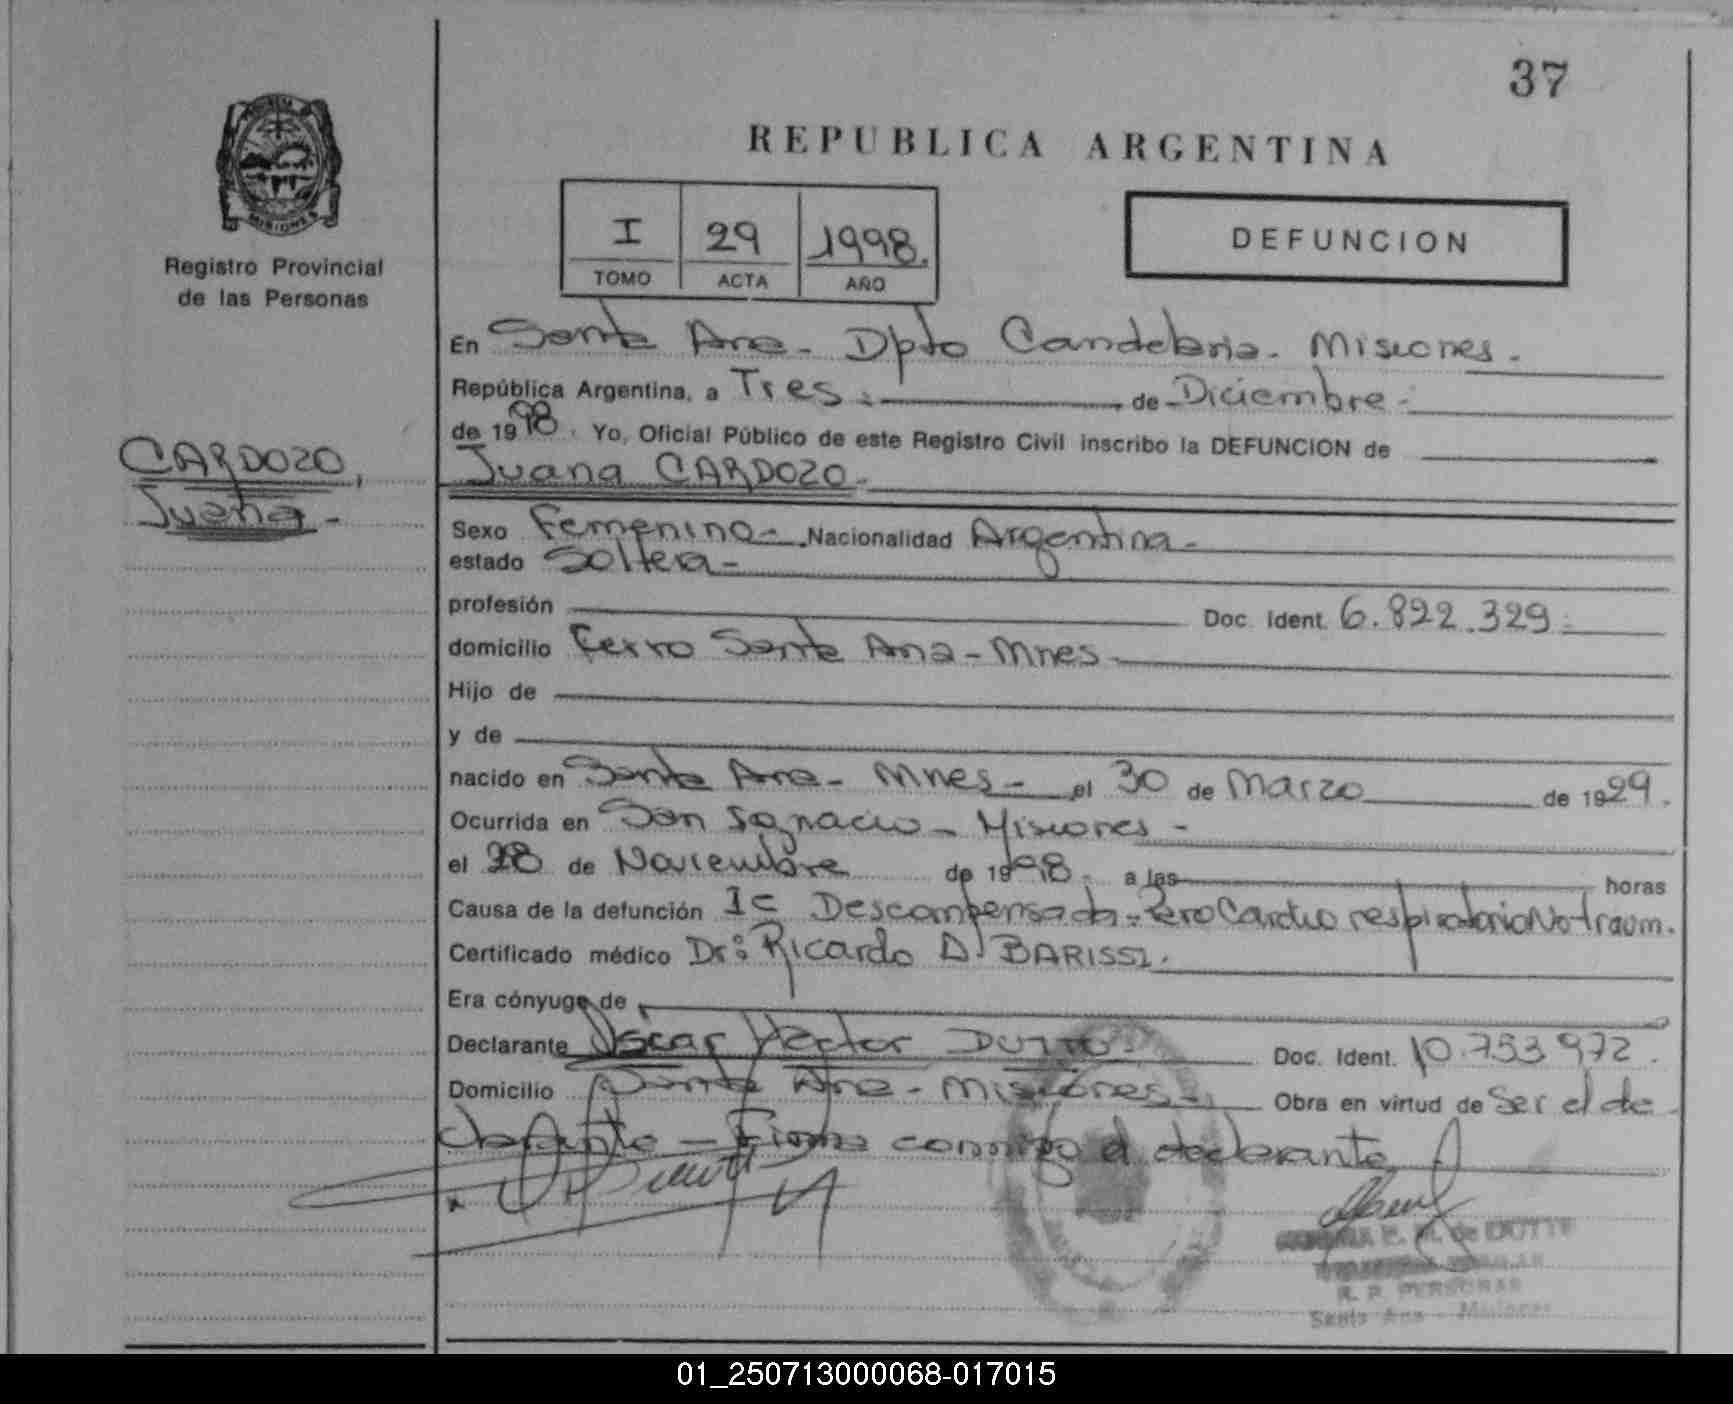 37
REPUBLICA ARGENTINA
I 29 1998.
TOMO ACTA AÑO
DEFUNCION
MISIONES
Registro Provincial
de las Personas
CARDOZO,
Juana -
En Santa Ana - Dpto Candelaria - Misiones -
República Argentina, a Tres de Diciembre -
de 1998. Yo, Oficial Público de este Registro Civil inscribo la DEFUNCION de
Juana CARDOZO -
Sexo Femenino - Nacionalidad Argentina -
estado Soltera -
profesión Doc. Ident. 6.822.329
domicilio Cerro Santa Ana - Mnes -
Hijo de
y de
nacido en Santa Ana - Mnes - el 30 de Marzo de 1929.
Ocurrida en San Ignacio - Misiones -
el 28 de Noviembre de 1998. a las horas
Causa de la defunción IC Descompensada - Paro Cardio respiratorio No traum.
Certificado médico Dr: Ricardo D. BARISSI.
Era cónyuge de
Declarante Oscar Hector DUTTO - Doc. Ident. 10.753.972.
Domicilio Santa Ana - Misiones - Obra en virtud de Ser el de
clarante - Firma conmigo el declarante
E. M. de DUTTO
R. P. PERSONAS
Santa Ana - Misiones
01_250713000068-017015